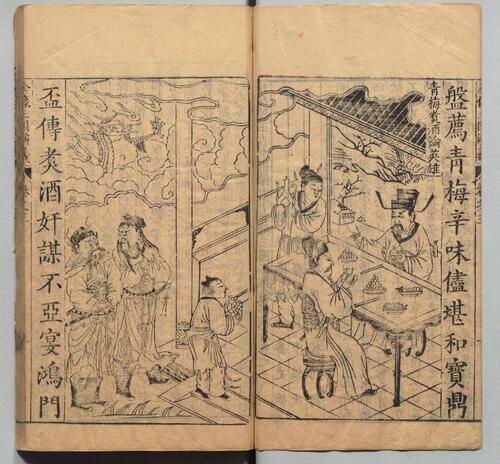 盤薦青梅辛味儘堪和寶鼎
青梅煑酒論英雄
盃傳煑酒奸謀不亞宴鴻門